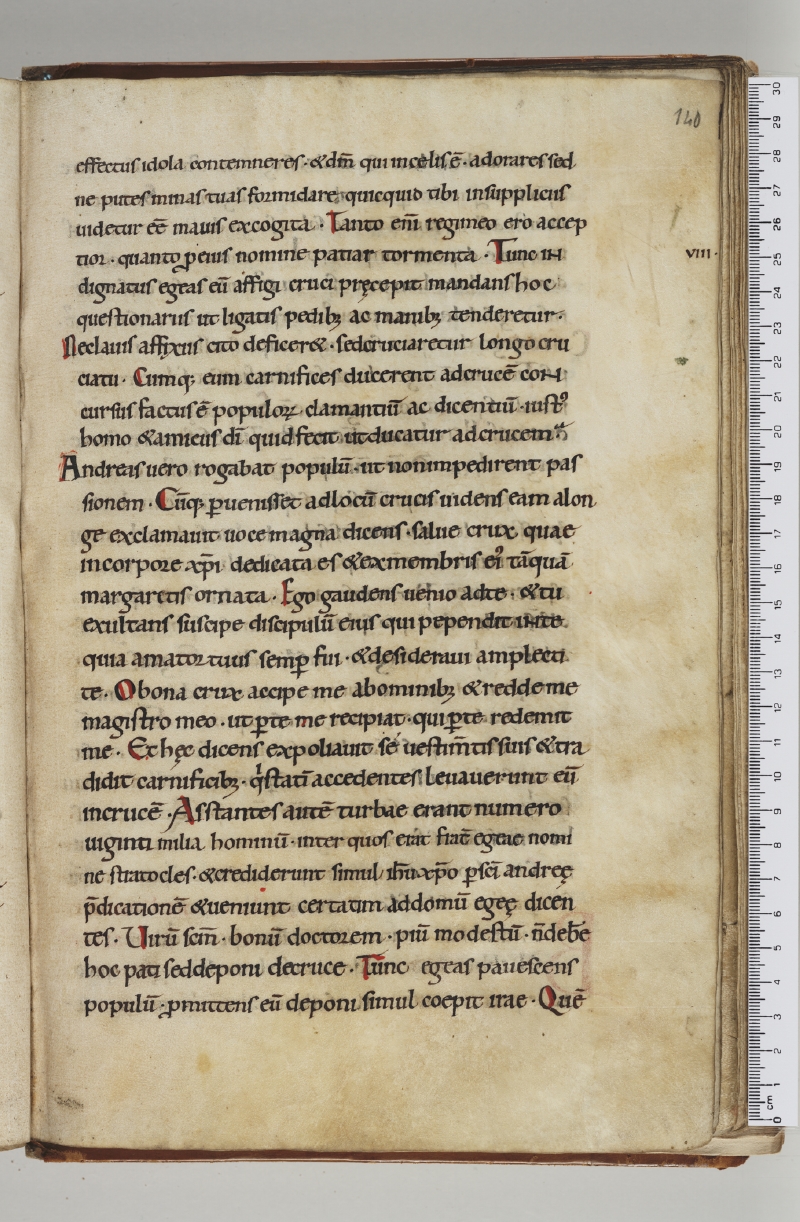 140
effectus idola contemneres · &dm̄ qui incęlis ē · adorares sed
ne putes minas tuas formidare quicquid tibi insuppliciis
uidetur eē maius excogita · Tanto eni̅ regi meo ero accep
tior · quanto ꝑ eius nomine patiar tormenta · Tunc in
VIII ·
dignatus egeas eū affigi cruci pręcepit mandans hoc
questionariis ut ligatis pedibꝫ ac manibꝫ tenderetur ·
Ne clauis affixus cito deficer& · sed cruciaretur longo cru
ciatu · Cumqꝫ eum carnifices ducerent ad crucē con
cursus factus ē populoꝝ clamantiū ac dicentiū · iustꝰ
homo & amicus di̅ quid fecit ut ducatur ad crucem
Andreas uero rogabat populū · ut non impedirent pas
sionem · Cūqꝫ ꝑuenisset ad locū crucis uidens eam alon
ge exclamauit uoce magna dicens · salue crux quae
in corpore xp̅i dedicata es & ex membris eiꝰ tāquā
margaretis ornata · Ego gaudens uenio ad te · & tu
exultans suscipe discipulū eius qui pependit in te
quia amator tuus semꝑ fui · & desideraui amplecti
te · O bona crux accipe me ab ominibꝫ & redde me
magistro meo · ut ꝑ te me recipiat · qui ꝑ te redemit
me · Et hęc dicens expoliauit se uestim̅tis suis & tra
didit carnificibꝫ · q̇ statī accedentes leuauerunt eū
in crucē · Asstantes autē turbae erant numero
uiginti milia hominū · inter quos erat frat̅ egeae nomi
ne stratocles · & crediderunt simul ih̅u xp̅o ꝑ sc̅i andreę
p̅dicationē & ueniunt certatim ad domū egeę dicen
tes · Uirū scm̅ · bonū doctorem · piū modestū · n̅ deb&̅
hoc pati sed deponi de cruce · Tunc egeas pauescens
populū · ꝓmittens eū deponi simul coepit irae · Quē